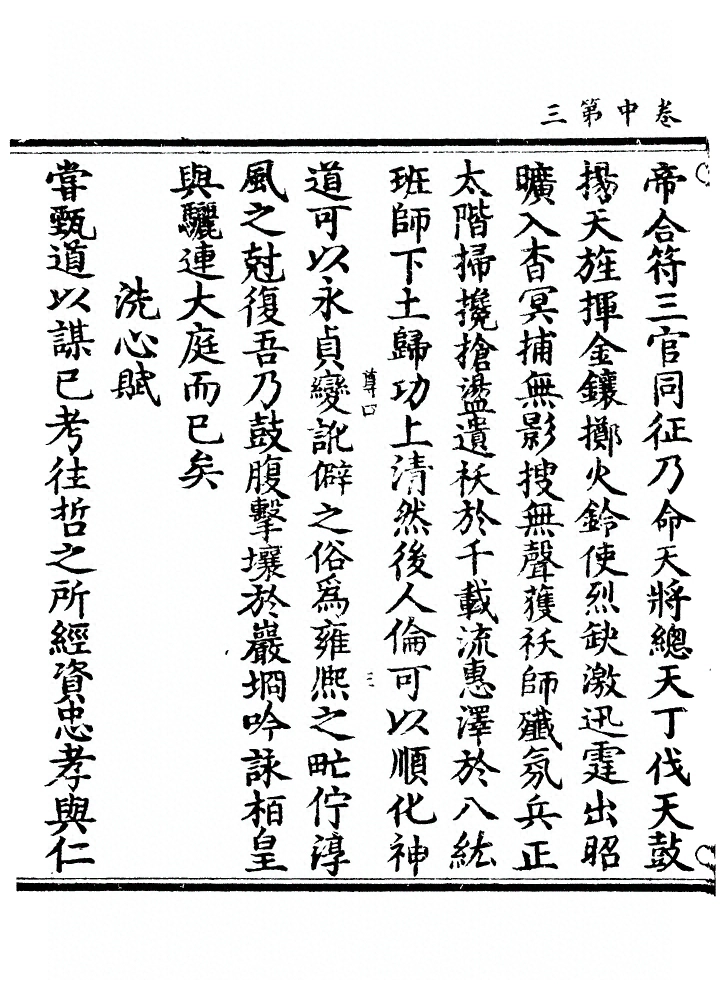 卷中第三
帝合符三官同征乃命天將總天丁伐天鼓
揚天旌揮金鑲擲火鈴使烈缺激迅霆出昭
曠入杳冥捕無影搜無聲獲祅師殲氛兵正
太階掃攙搶盪遺祅於千載流惠澤於八紘
班師下土歸功上清然後人倫可以順化神
尊
三
道可以永貞變訛僻之俗爲雍熈之甿佇淳
風之尅復吾乃鼓腹擊壤於巖坰吟詠栢皇
與驪連大庭而已矣
洗心賦
嘗甄道以謀已考往哲之所經資忠孝與仁